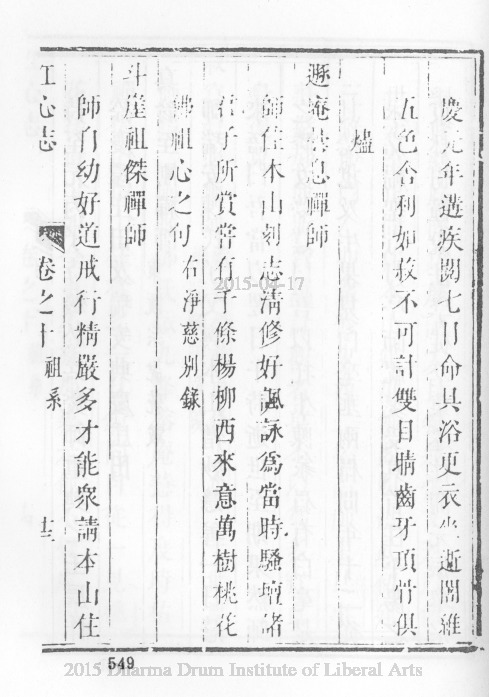 慶元年遘疾閱七日命具浴更衣坐逝闍維
五色舍利如菽不可計雙目睛齒牙頂骨俱
燼
遯菴 息禪師
師住本山刻志清修好諷詠爲當時騷壇諸
君子所賞嘗有千條楊柳西來意萬樹桃花
佛祖心之句 右淨慈別錄
斗崖祖傑禪師
師自幼好道戒行精嚴多才能衆請本山住
江心志 卷之十 祖系 十三
2015-04-17
549
2015 Dharma Drum Institute of Liberal Arts